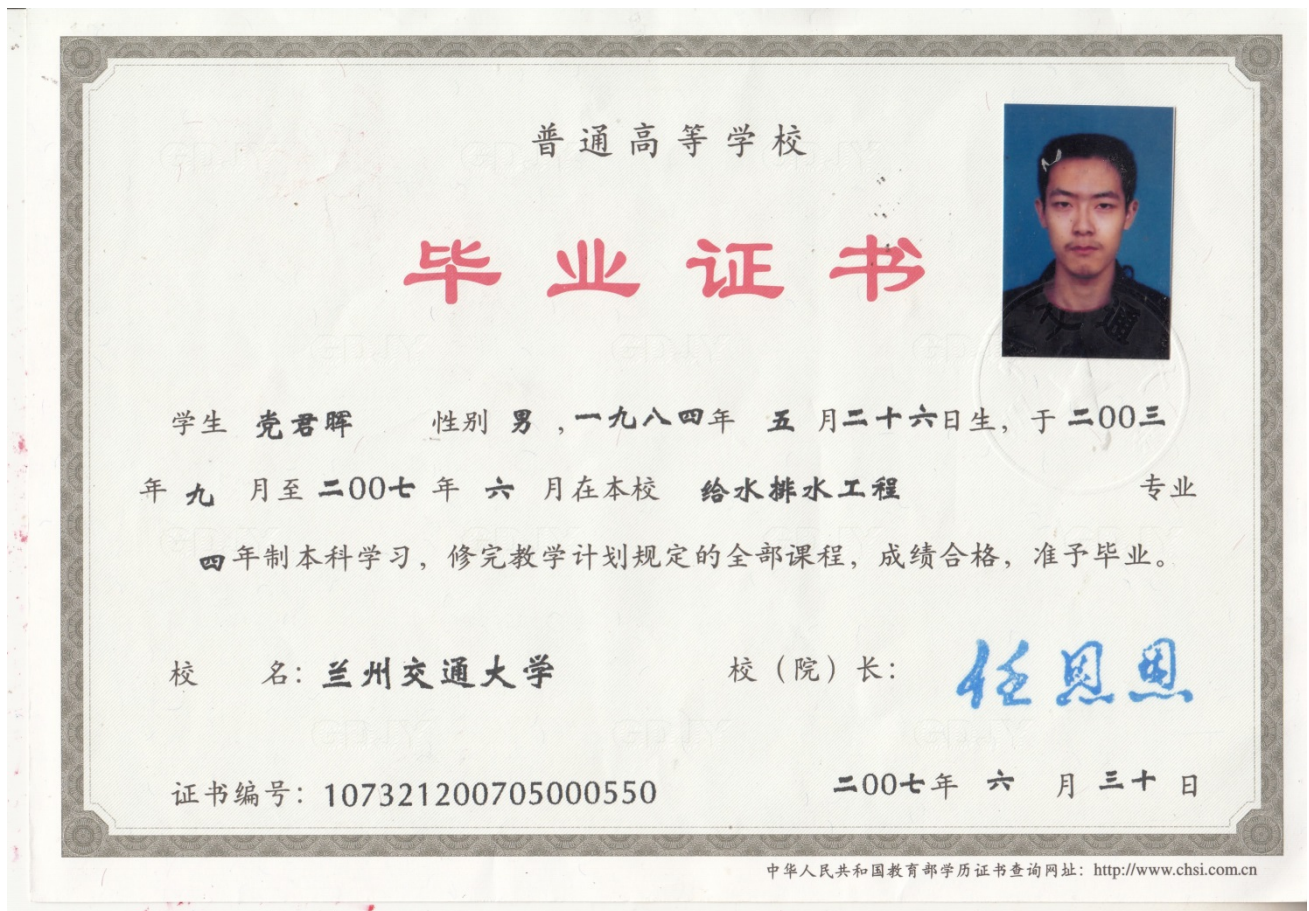 普通高等学校
毕业证书
学生 党君晖 性别 男 ,一九八四年 五 月二十六日生，于 二00三
年 九 月至 二00七 年 六 月在本校 给水排水工程 专业
四年制本科学习，修完教学计划规定的全部课程，成绩合格，准予毕业。
校 名：兰州交通大学 校（院）长：任恩恩
证书编号：107321200705000550 二00七年 六 月 三十 日
中华人民共和国教育部学历证书查询网址：http://www.chsi.com.cn